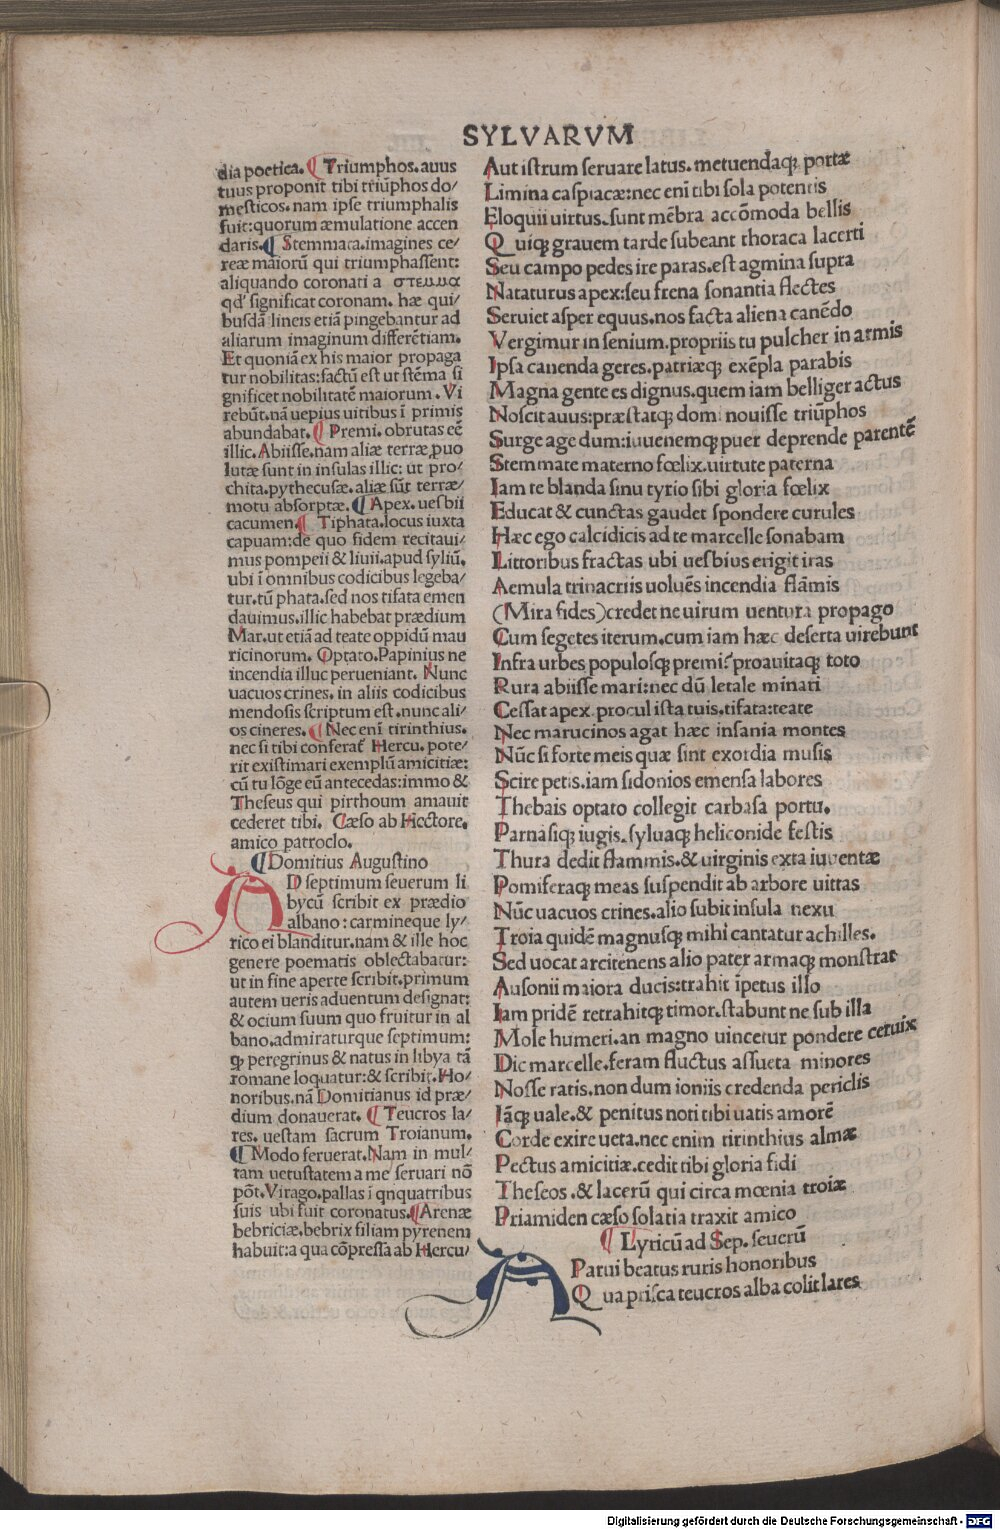 SYLVARVM
dia poetica. ¶ Triumphos. auus
tuus proponit tibi triūphos do/
mesticos. nam ipse triumphalis
fuit: quorum æmulatione accen
daris. ¶ Stemmata. imagines ce/
reæ maiorū qui triumphassent:
aliquando coronati a στεμμα
qd' significat coronam. hæ qui/
busdā lineis etiā pingebantur ad
aliarum imaginum differētiam.
Et quoniā ex his maior propaga
tur nobilitas: factū est ut stēma si
gnificet nobilitatē maiorum. Vi
rebūt. nā uepius uitibus ī primis
abundabat. ¶ Premi. obrutas eē
illic. Abiisse. nam aliæ terræ ꝓuo
lutæ sunt in insulas illic: ut pro/
chita. pythecusæ. aliæ sūt terræ/
motu absorptæ. ¶ Apex. uesbii
cacumen. ¶ Tiphata. locus iuxta
capuam: de quo fidem recitaui/
mus pompeii & liuii. apud syliū.
ubi ī omnibus codicibus legeba/
tur. tū phata. sed nos tifata emen
dauimus. illic habebat prædium
Mar. ut etiā ad teate oppidū mau
ricinorum. Optato. Papinius ne
incendia illuc perueniant. Nunc
uacuos crines. in aliis codicibus
mendosis scriptum est. nunc ali/
os cineres. ¶ Nec enī tirinthius.
nec si tibi conferat̄ Hercu. pote/
rit existimari exemplū amicitiæ:
cū tu lōge eū antecedas: immo &
Theseus qui pirthoum amauit
cederet tibi. Cæso ab Hectore.
amico patroclo.
¶ Domitius Augustino
AD septimum seuerum li
bycū scribit ex prædio
albano: carmineque ly/
rico ei blanditur. nam & ille hoc
genere poematis oblectabatur:
ut in fine aperte scribit. primum
autem ueris aduentum designat:
& ocium suum quo fruitur in al
bano. admiraturque septimum:
ꝙ peregrinus & natus in libya tā
romane loquatur: & scribit. Ho/
noribus. nā Domitianus id præ/
dium donauerat. ¶ Teucros la/
res. uestam sacrum Troianum.
¶ Modo feruerat. Nam in mul/
tam uetustatem a me seruari nō
pōt. Virago. pallas ī qnquatribus
suis ubi fuit coronatus. ¶ Arenæ
bebriciæ. bebrix filiam pyrenem
habuit: a qua cōpressa ab Hercu/
Aut istrum seruare latus. metuendaqꝫ portæ
Limina caspiacæ: nec enī tibi sola potentis
Eloquii uirtus. sunt mēbra accōmoda bellis
Quiqꝫ grauem tarde subeant thoraca lacerti
Seu campo pedes ire paras. est agmina supra
Nataturus apex: seu frena sonantia flectes
Seruiet asper equus. nos facta aliena canēdo
Vergimur in senium. propriis tu pulcher in armis
Ipsa canenda geres. patriæqꝫ exēpla parabis
Magna gente es dignus. quem iam belliger actus
Noscit auus: præstatqꝫ domi nouisse triūphos
Surge age dum: iuuenemqꝫ puer deprende parentē
Stemmate materno fœlix. uirtute paterna
Iam te blanda sinu tyrio sibi gloria fœlix
Educat & cunctas gaudet spondere curules
Hæc ego calcidicis ad te marcelle sonabam
Littoribus fractas ubi uesbius erigit iras
Aemula trinacriis uoluēs incendia flāmis
(Mira fides) credet ne uirum uentura propago
Cum segetes iterum. cum iam hæc deserta uirebunt
Infra urbes populosqꝫ premi? proauitaqꝫ toto
Rura abiisse mari: nec dū letale minati
Cessat apex. procul ista tuis. tifata: teate
Nec marucinos agat hæc insania montes
Nūc si forte meis quæ sint exordia musis
Scire petis. iam sidonios emensa labores
Thebais optato collegit carbasa portu.
Parnasiqꝫ iugis. syluaqꝫ heliconide festis
Thura dedit flammis. & uirginis exta iuuentæ
Pomiferaqꝫ meas suspendit ab arbore uittas
Nūc uacuos crines. alio subit insula nexu
Troia quidē magnusqꝫ mihi cantatur achilles.
Sed uocat arcitenens alio pater armaqꝫ monstrat
Ausonii maiora ducis: trahit īpetus illo
Iam pridē retrahitqꝫ timor. stabunt ne sub illa
Mole humeri. an magno uincetur pondere ceruix
Dic marcelle. feram fluctus assueta minores
Nosse ratis. non dum ioniis credenda periclis
Iāqꝫ uale. & penitus noti tibi uatis amorē
Corde exire ueta. nec enim tirinthius almæ
Pectus amicitiæ. cedit tibi gloria fidi
Theseos. & lacerū qui circa mœnia troiæ
Priamiden cæso solatia traxit amico
¶ Lyricū ad Sep. seuerū
APatui beatus ruris honoribus
Qua prisca teucros alba colit lares
Digitalisierung gefördert durch die Deutsche Forschungsgemeinschaft - DFG